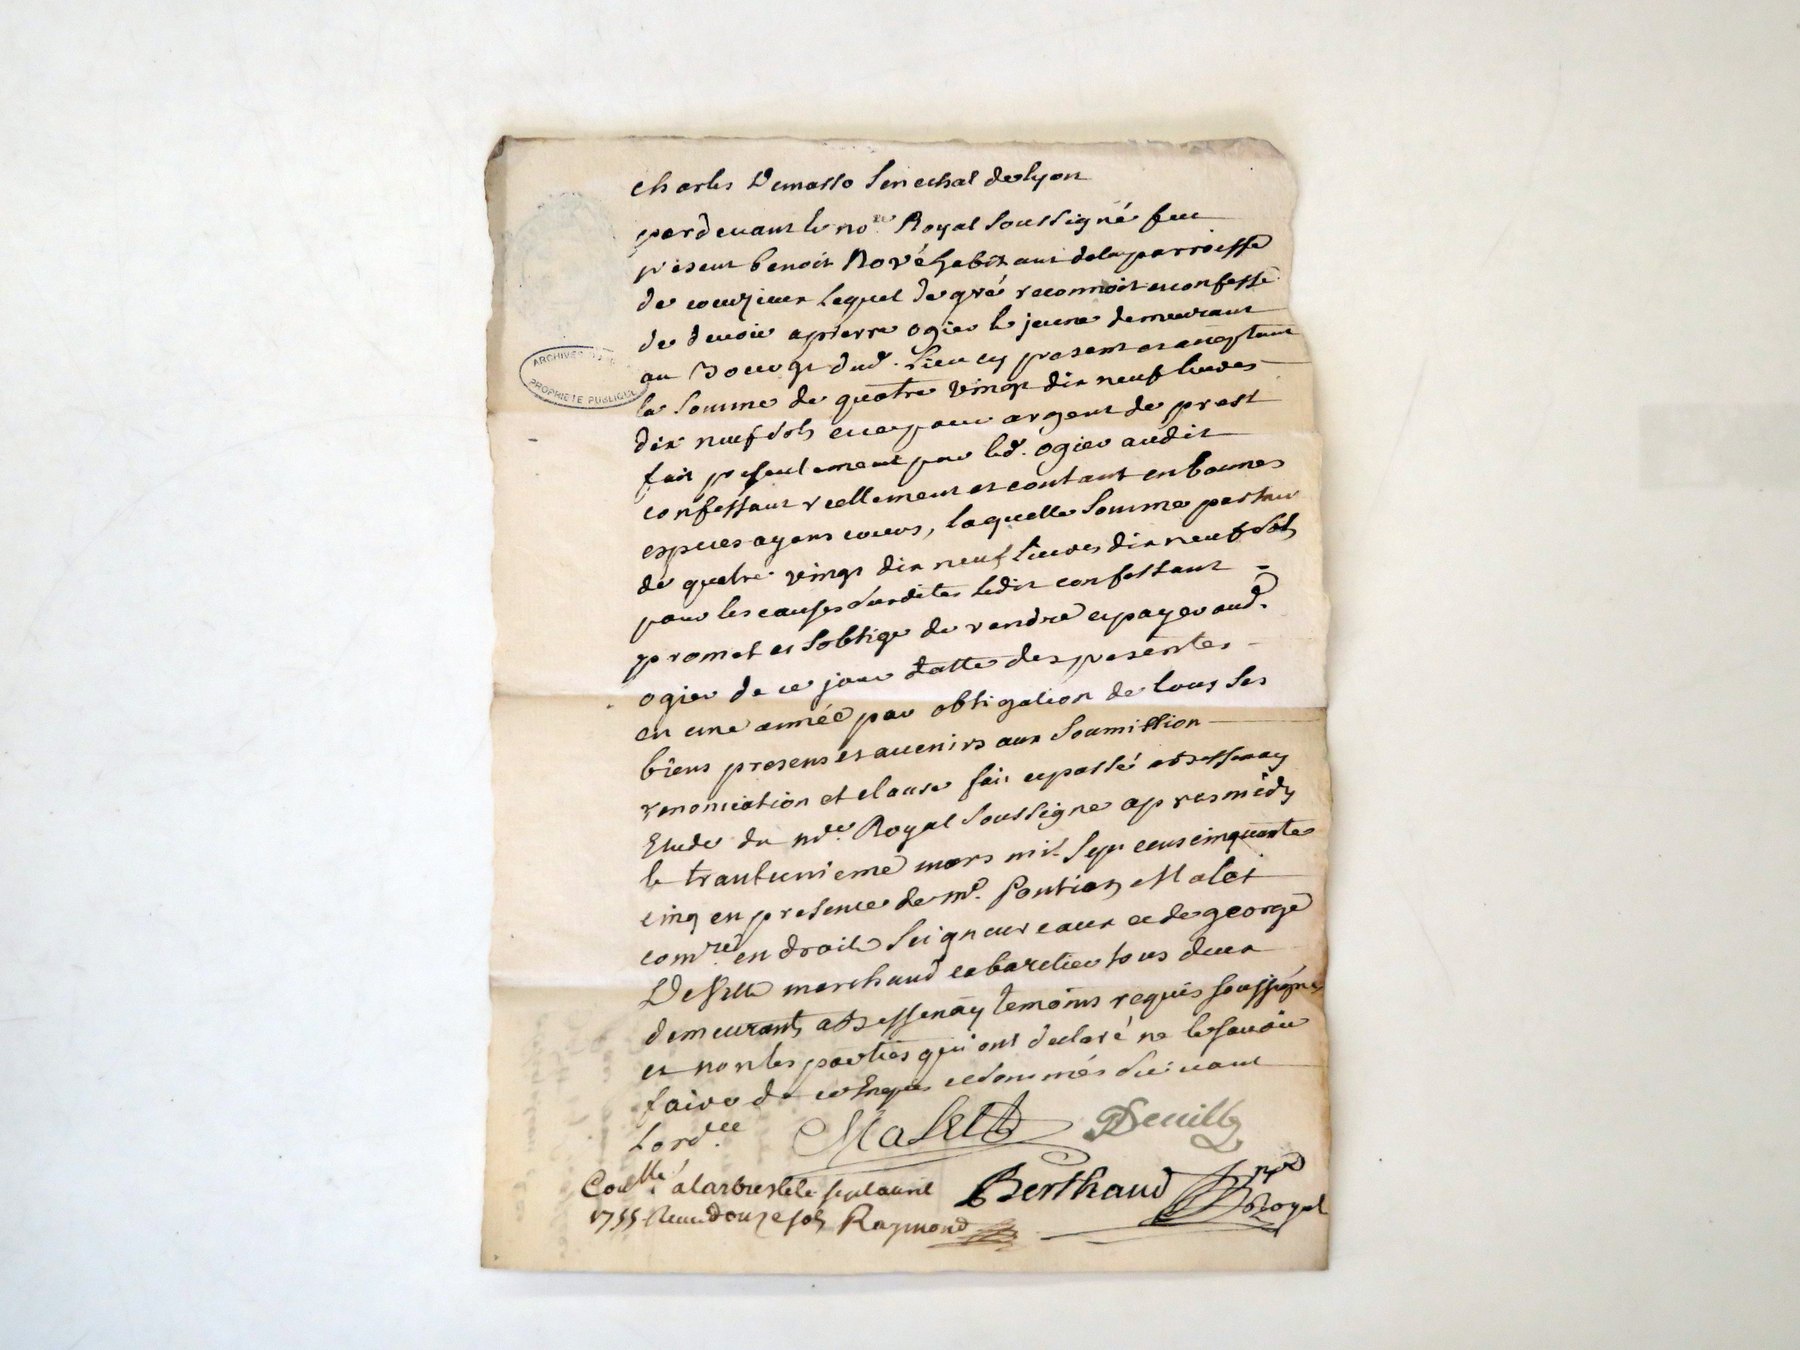 Charles Demasso Senechal de Lyon
pardevant le no.re Royal soussigné fut
présent benoit Rové habitant de la parroisse
de couzieux lequel de gré reconnoit et confesse
de devoir a pierre ogier le jeune demeurant
au bourgt dud. lieu cy present et acceptant
la somme de quatre vingt dix neuf livres
dix neuf sols et ce pour argent de prest
fait presentement par led. ogier audit
confessant reellement et contant en bonnes
especes ayant cours, laquelle somme
de quatre vingt dix neuf livres dix neuf sols
pour les causes susdites ledit confessant =
promet et s'oblige de rendre et payer aud.
ogier de ce jour datte des presentes
en une année par obligation de tous ses
biens presens et avenirs aux soumission
renonciation et clause fait et passé a bessenay
Etude du no.re Royal soussigne apres midy
le trantunieme mars mil sept cens cinquante
cinq en presence de m.e Malet
com.re en droits seigneureaux et de george
Deville marchand cabaretier tous deux
demeurants a bessenay temoins requis soussignés
et non les parties qui ont declaré ne le savoir
faire de ce enquis et sommés suivant
l'ord.ce
Malet GDeville
Con.lle à larbresle le sept avril Berthaud no.re Royal
1755 Reçu douze sols Raymond
ARCHIVES
PROPRIETE PUBLIQUE